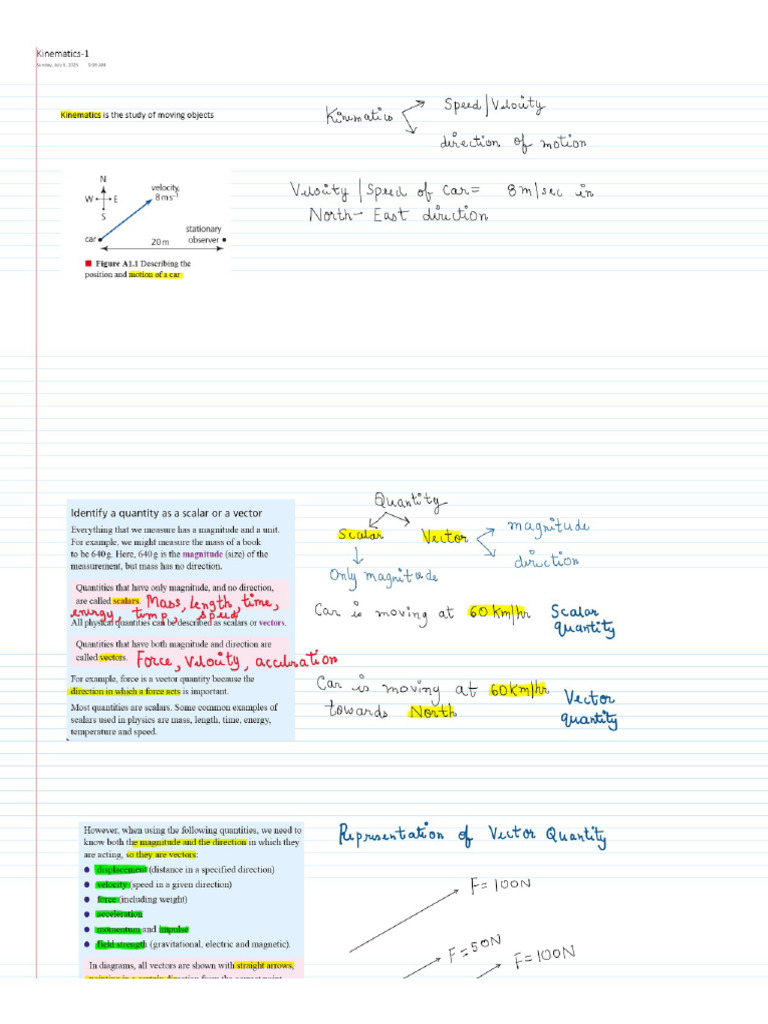 Kinematics-1
Sunday, July 6, 2025
Kinematics is the study of moving objects
Kinematics
Speed/Velocity
direction of motion
N
W
E
S
velocity,
8 ms⁻¹
car
20 m
stationary
observer
Figure A1.1 Describing the
position and motion of a car
Velocity/Speed of Car = 8m/sec in
North-East direction
Identify a quantity as a scalar or a vector
Everything that we measure has a magnitude and a unit.
For example, we might measure the mass of a book
to be 640 g. Here, 640 g is the magnitude (size) of the
measurement, but mass has no direction.
Quantities that have only magnitude, and no direction,
are called scalars. Mass, length, time,
energy, temp, speed
All physical quantities can be described as scalars or vectors.
Quantities that have both magnitude and direction are
called vectors. Force, Velocity, accleration
For example, force is a vector quantity because the
direction in which a force acts is important.
Most quantities are scalars. Some common examples of
scalars used in physics are mass, length, time, energy,
temperature and speed.
Quantity
Scalar
Vector
magnitude
direction
Only magnitude
Car is moving at 60 Km/hr
Scalar
quantity
Car is moving at 60 Km/hr
towards North
Vector
quantity
However, when using the following quantities, we need to
know both the magnitude and the direction in which they
are acting, so they are vectors:
• displacement (distance in a specified direction)
• velocity (speed in a given direction)
• force (including weight)
• acceleration
• momentum and impulse
• field strength (gravitational, electric and magnetic).
In diagrams, all vectors are shown with straight arrows,
Representation of Vector Quantity
F = 100N
F = 50N
F = 100N